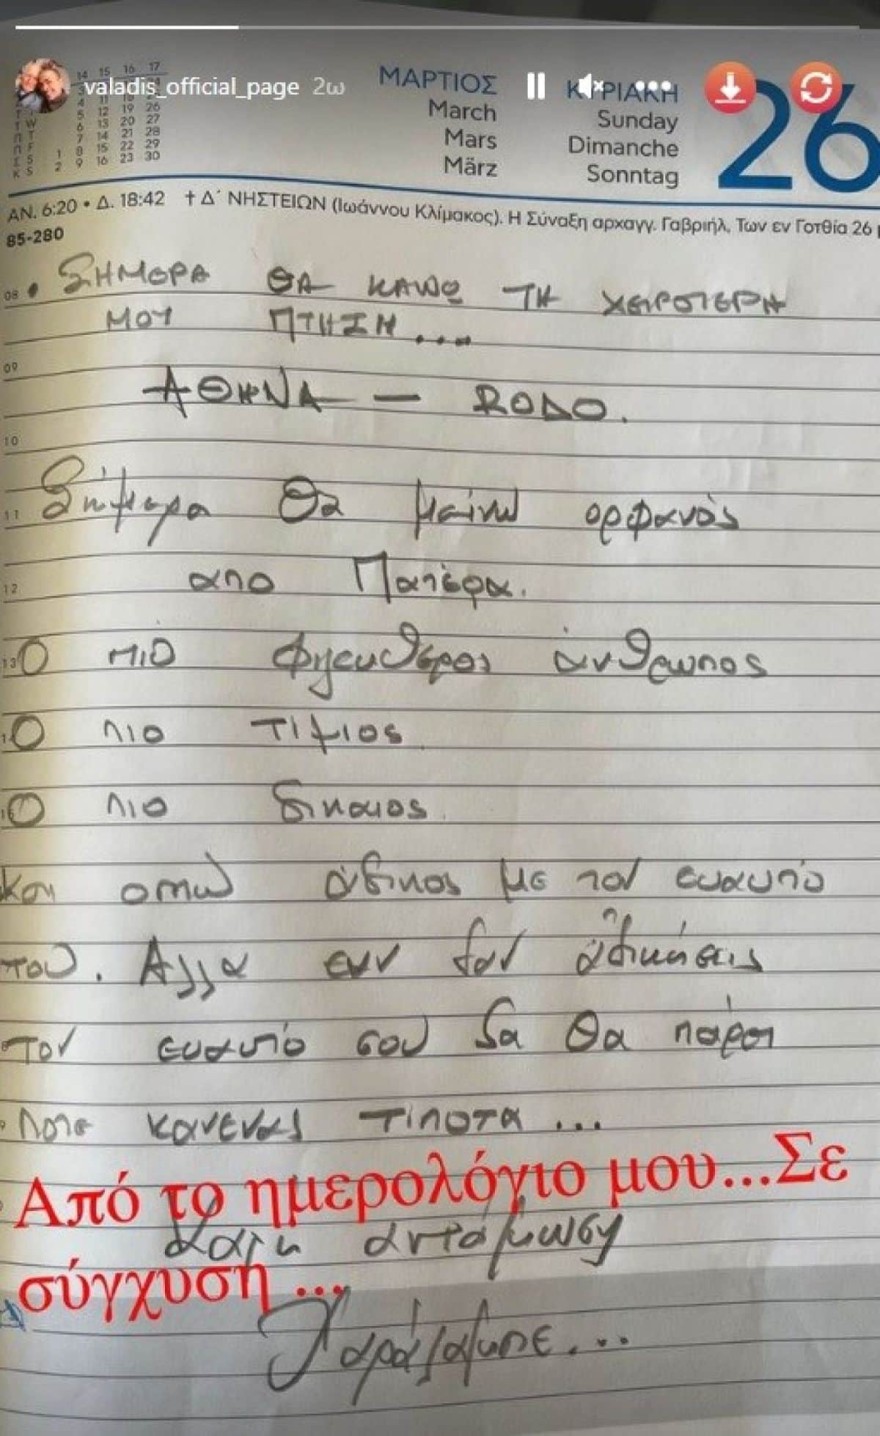 valadis_official_page 2ω
14 15 16 17
ΜΑΡΤΙΟΣ
March
Mars
März
ΚΥΡΙΑΚΗ
Sunday
Dimanche
Sonntag
26
ΑΝ. 6:20 • Δ. 18:42 † Δ΄ ΝΗΣΤΕΙΩΝ (Ιωάννου Κλίμακος). Η Σύναξη αρχαγγ. Γαβριήλ, Των εν Γοτθία 26
85-280
08 • ΣΗΜΕΡΑ ΘΑ ΚΑΝΩ ΤΗ ΧΕΙΡΟΤΕΡΗ
ΜΟΥ ΠΤΗΣΗ ...
09
ΑΘΗΝΑ — RΟΔΟ.
10
11 Σήμερα θα μείνω ορφανός
12 απο Πατέρα.
13 Ο πιο άνθρωπος
Ο πιο τίμιος
Ο πιο δικαιος
και άδικος με τον ευαυτό
του. Αλλα εαν δον αδικήσεις
τον ευαυτό σου δα θα πάρει
ποτε κανενας τιποτα ...
Από το ημερολόγιο μου...Σε
Καλη αντάμωση
σύγχυση ...